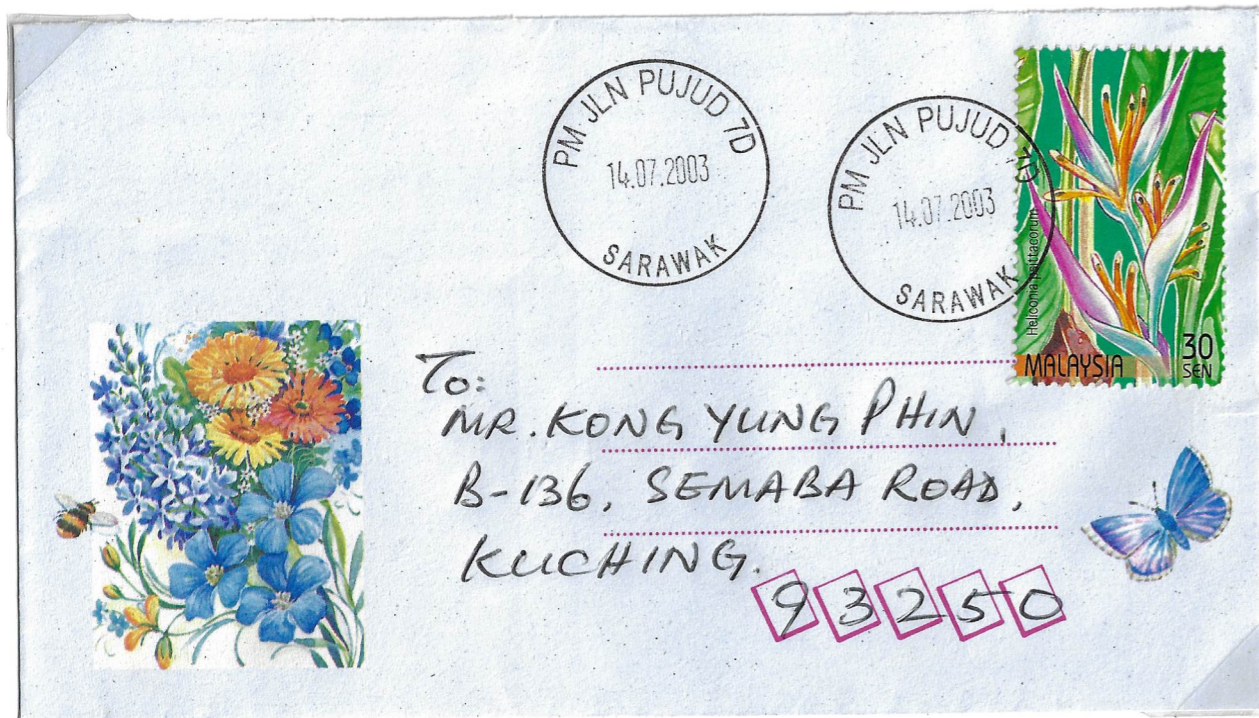 PM JLN PUJUD 7D
14.07.2003
SARAWAK
PM JLN PUJUD 7D
14.07.2003
SARAWAK
Heliconia psittacorum
MALAYSIA
30
SEN
To:
MR. KONG YUNG PHIN,
B-136, SEMABA ROAD,
KUCHING.
93250